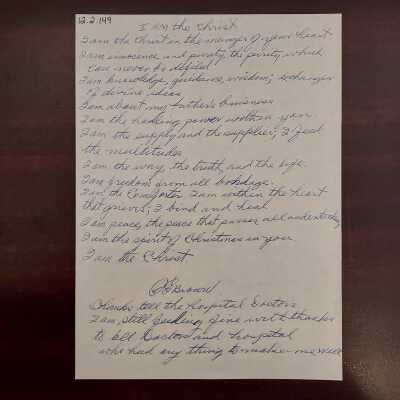 12.2.149
I am the Christ
I am the Christ in the manger of your heart
I am innocence and purity, the purity which
can never be defiled
I am knowledge, guidance, wisdom,
of divine ideas
I am about my father's business
I am the healing power within you
I am the supply and the supplier; I feed
the multitudes
I am the way, the truth, and the life.
I am freedom from all bondage.
I am the Comforter I am within the heart
that grieves, I bind and heal
I am peace, the peace that passes all understanding
I am the spirit of Christmas in you
I am the Christ
Brown
tell the hospital Doctors
I am still feeling fine with thanks
to all Doctors and hospital
who had any thing to make me well